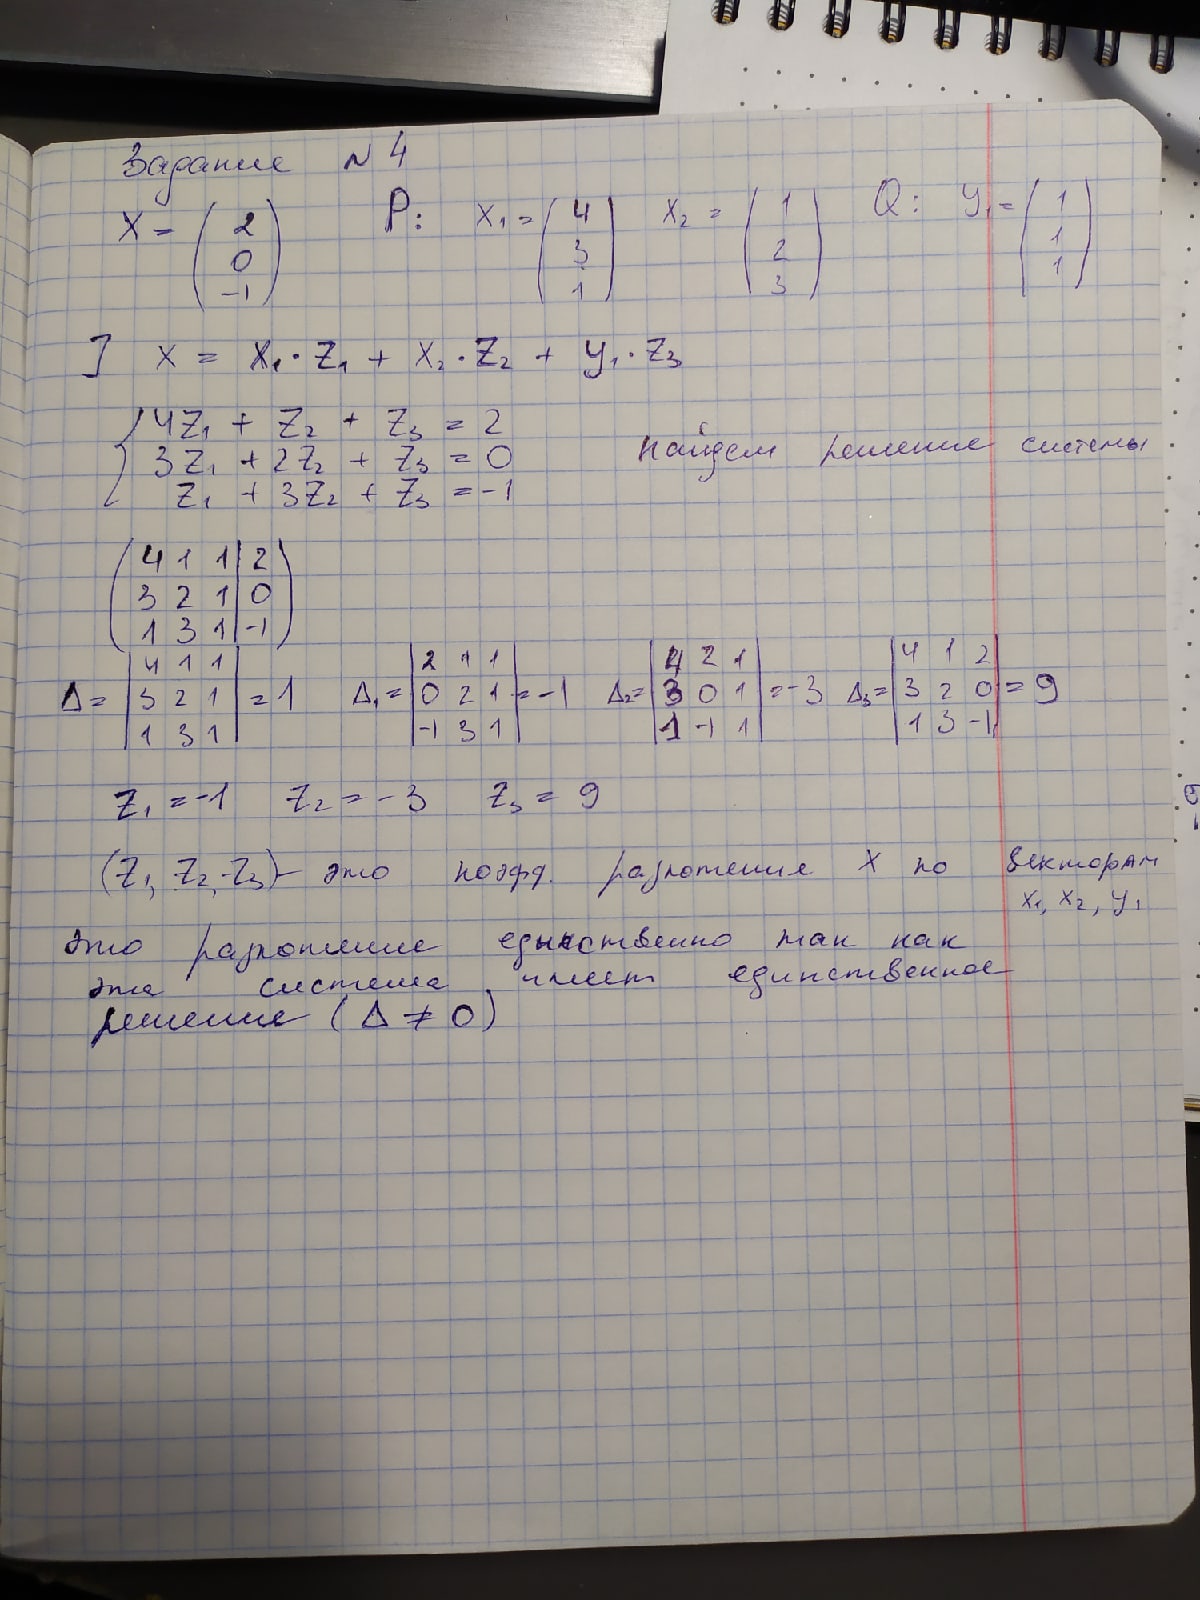 Задание №4
X = (2 0 -1) P: x₁ = (4 3 1) x₂ = (1 2 3) Q: y₁ = (1 1 1)
] x = x₁·z₁ + x₂·z₂ + y₁·z₃
4z₁ + z₂ + z₃ = 2
3z₁ + 2z₂ + z₃ = 0 найдем решение системы
z₁ + 3z₂ + z₃ = -1
4 1 1 | 2
3 2 1 | 0
1 3 1 | -1
Δ = |4 1 1; 3 2 1; 1 3 1| = 1 Δ₁ = |2 1 1; 0 2 1; -1 3 1| = -1 Δ₂ = |4 2 1; 3 0 1; 1 -1 1| = -3 Δ₃ = |4 1 2; 3 2 0; 1 3 -1| = 9
z₁ = -1 z₂ = -3 z₃ = 9
(z₁, z₂, z₃) - это коэфф. разложения X по векторам
x₁, x₂, y₁
это разложение единственно так как
эта система имеет единственное
решение (Δ ≠ 0)